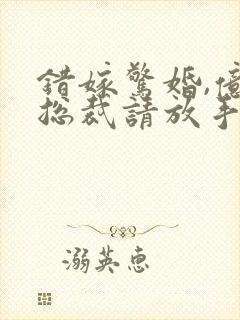 錯嫁驚婚,億
總裁請放手
溺英惠